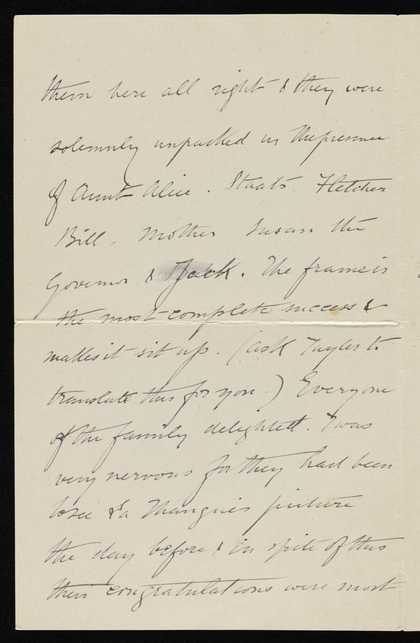 them here all right & they were
solemnly unpacked in the presence
of Aunt Alice. Staats. Fletcher
Bill. Mother Susan the
Governor & Jack. The frame is
the most complete success &
makes it sit up. (ask Taylor to
translate this for you.) Everyone
of the family delighted. I was
very nervous for they had been
to see
picture
the day before & in spite of this
their congratulations were most